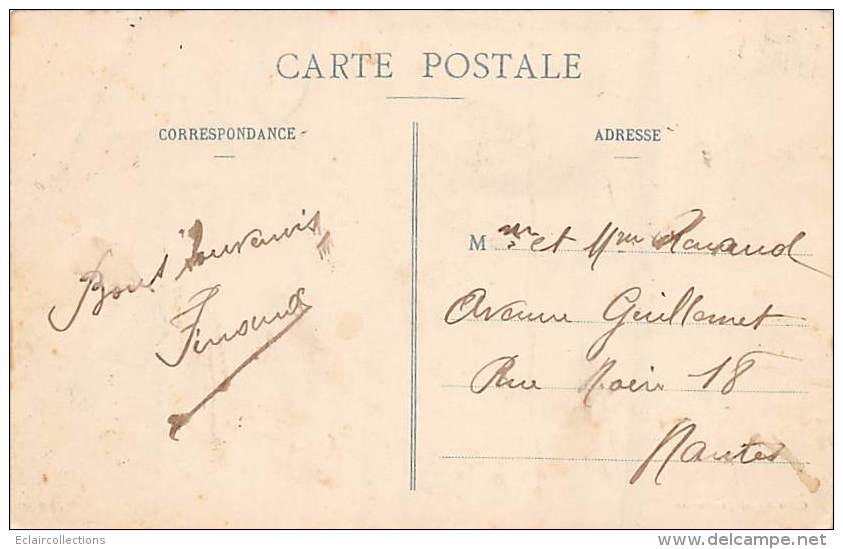 CARTE POSTALE
CORRESPONDANCE
Bons Souvenirs
ADRESSE
M et Mme
Avenue Guillemet
Rue Noire 18
Nantes
Eclaircollections
www.delcampe.net